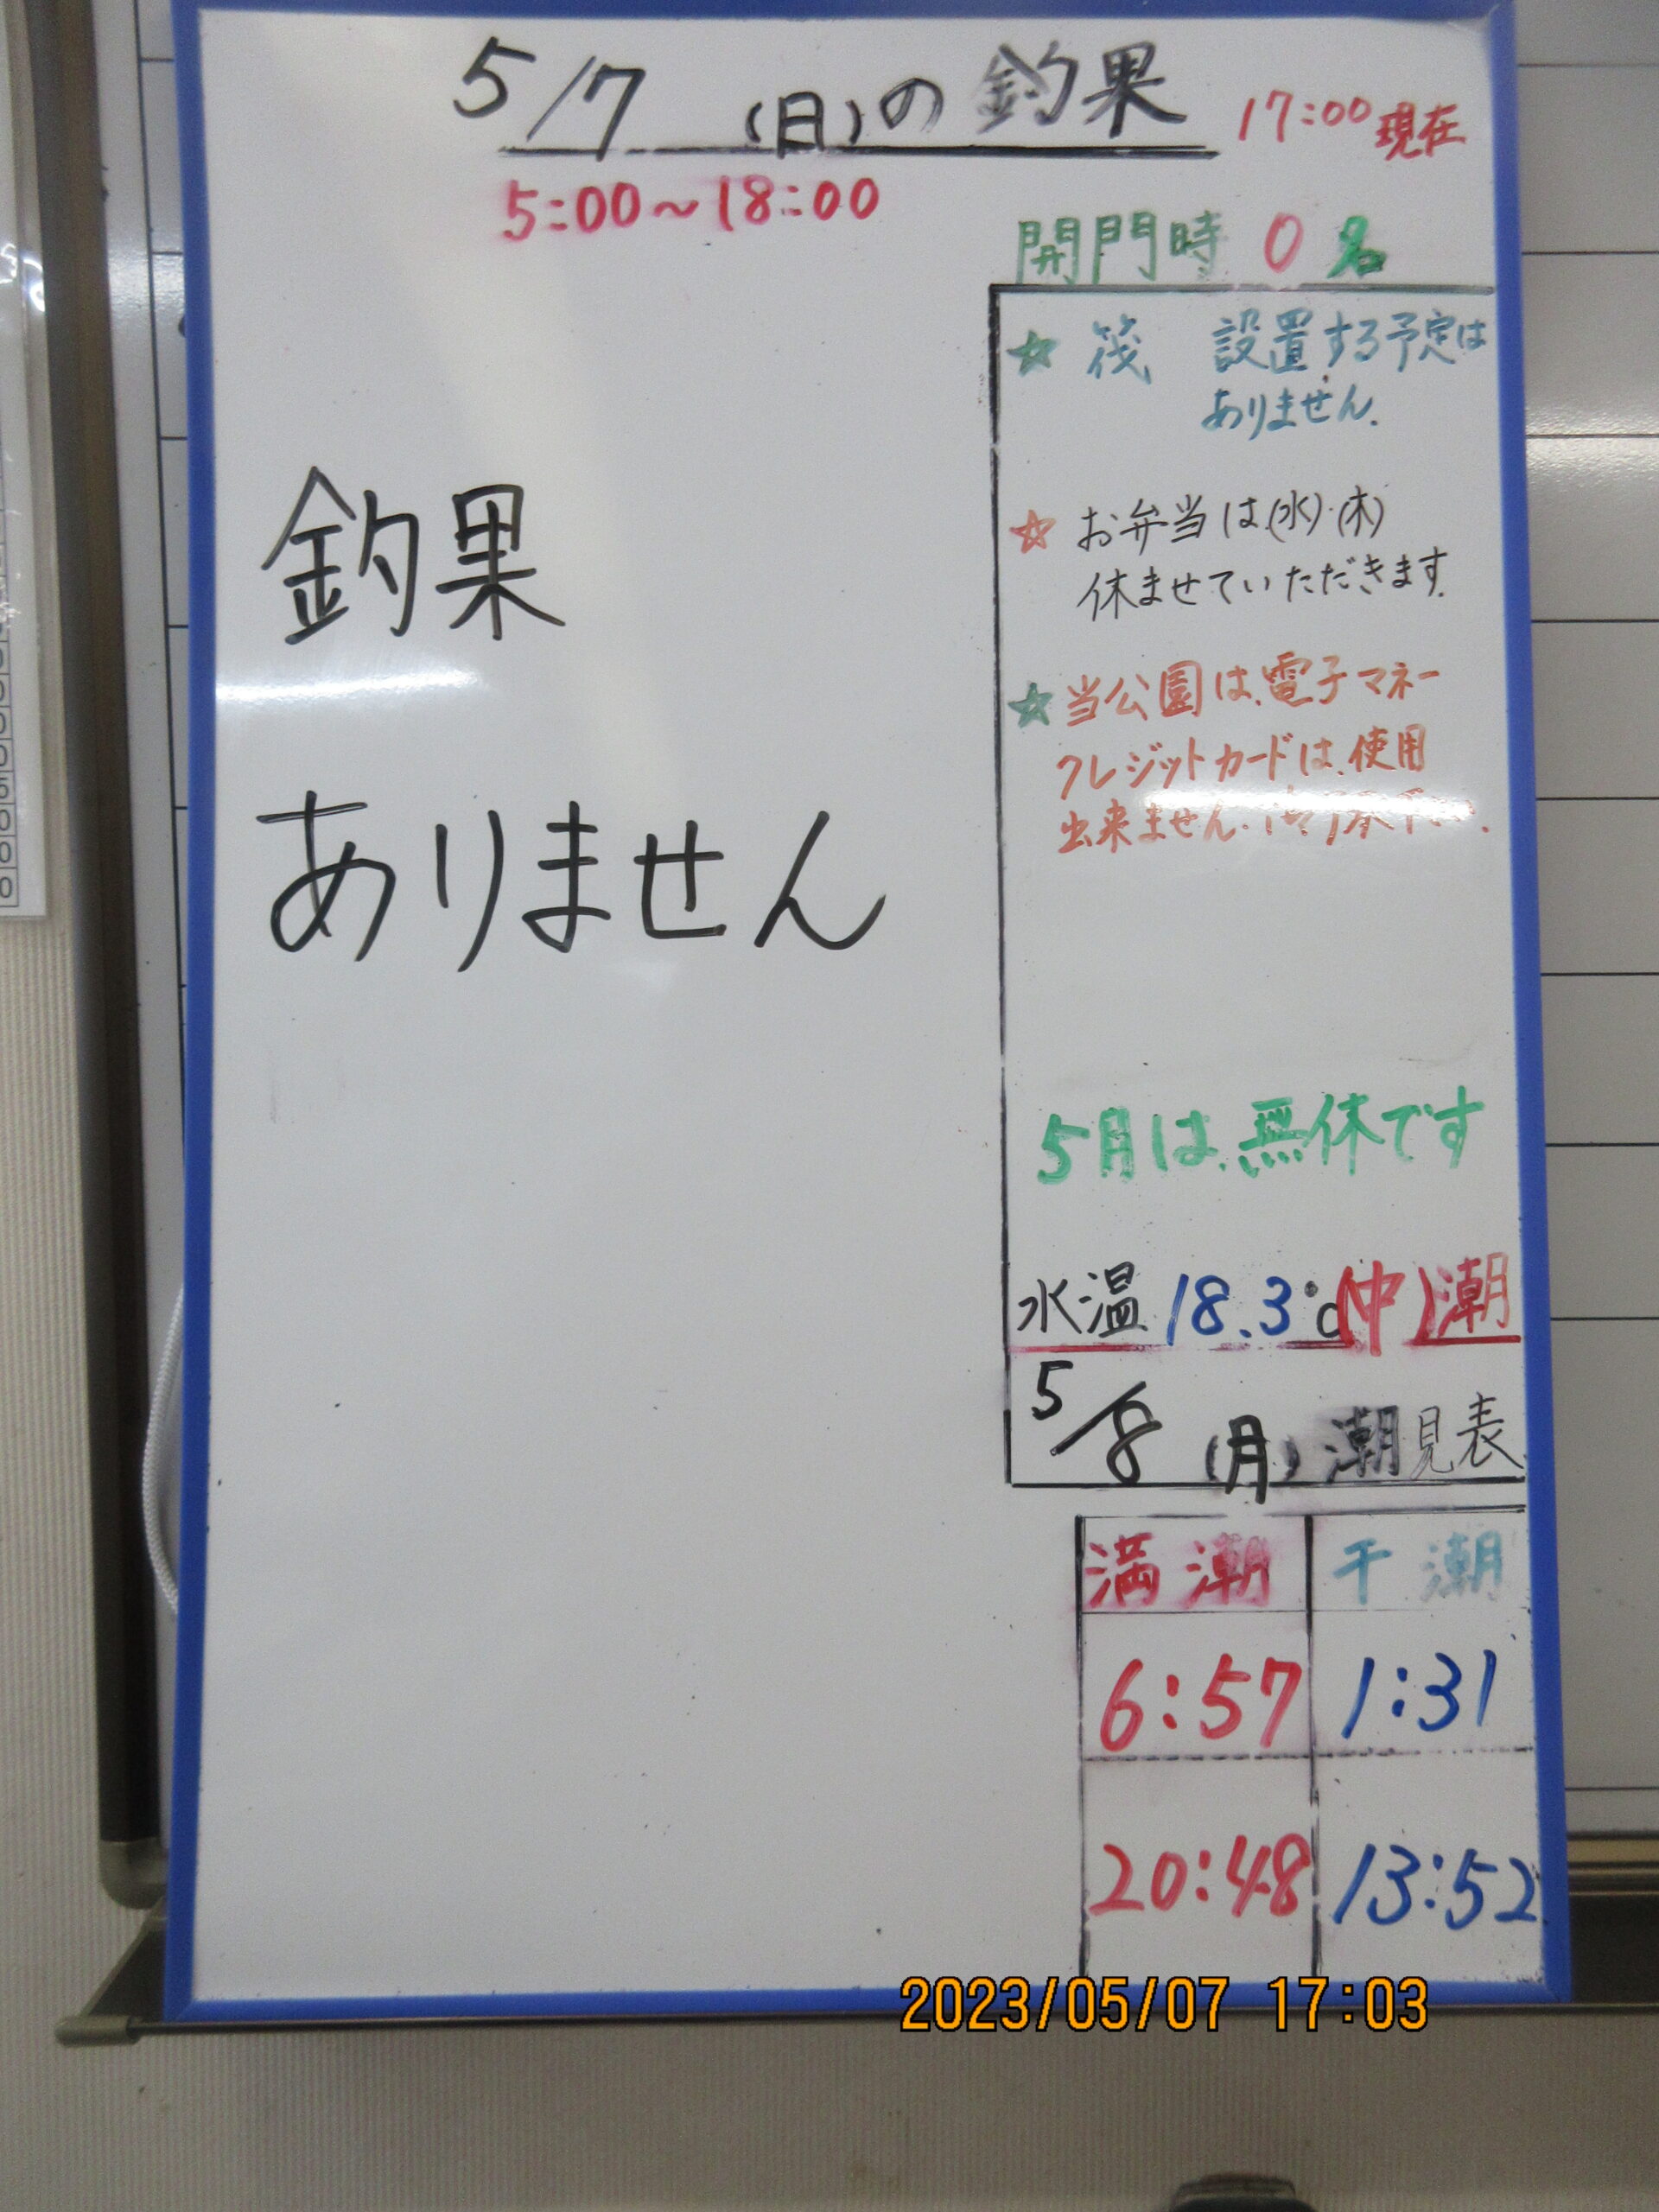 5/7 (日)の釣果 17:00現在
5:00～18:00
開門時 0名
釣果
ありません
☆ 筏 設置する予定は
ありません.
☆ お弁当は(水)・(木)
休ませていただきます.
☆ 当公園は、電子マネー
クレジットカードは、使用
出来ません.
5月は、無休です
水温 18.3℃ (中)潮
5/8 (月) 潮見表
満潮 干潮
6:57 1:31
20:48 13:52
2023/05/07 17:03